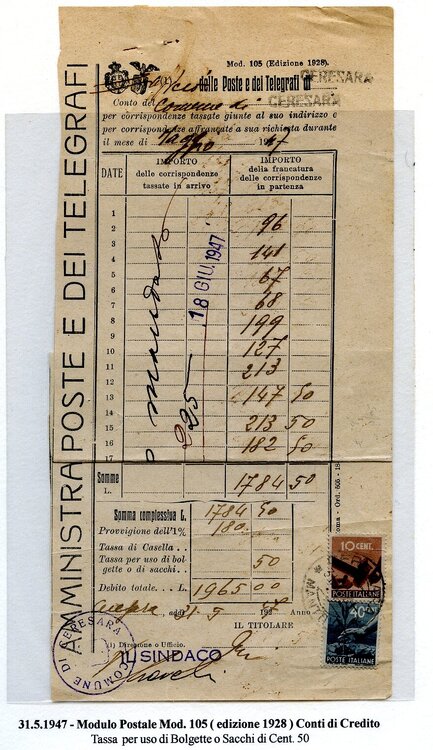 Mod. 105 (Edizione 1928).
delle Poste e dei Telegrafi di
CERESARA
CERESARA
Conto del Comune di
per corrispondenze tassate giunte al suo indirizzo e
per corrispondenze affrancate a sua richiesta durante
il mese di 1947
AMMINISTRA POSTE E DEI TELEGRAFI
DATE
IMPORTO
delle corrispondenze
tassate in arrivo
IMPORTO
della francatura
delle corrispondenze
in partenza
1
2 96
3 141
4 67
5 68
6 199
9 127
10 213
13 147 50
15 213 50
16 182 50
17
mandato
225
18 GIU. 1947
Somme L. 1784 50
Somma complessiva L. 1784 50
Provvigione dell'1% 180
Tassa di Casella
Tassa per uso di bol-
gette o di sacchi 50
Debito totale L. 1965 00
addì 31 5 1947
IL TITOLARE
(1) Direzione o Ufficio.
IL SINDACO
COMUNE DI CERESARA
10 CENT.
POSTE ITALIANE
POSTE ITALIANE
31.5.1947 - Modulo Postale Mod. 105 ( edizione 1928 ) Conti di Credito
Tassa per uso di Bolgette o Sacchi di Cent. 50